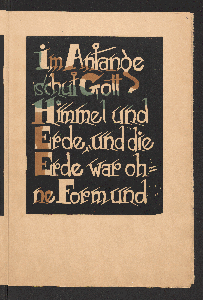 im Anfange
schuf Gott
Himmel und
Erde, und die
Erde war oh=
ne Form und